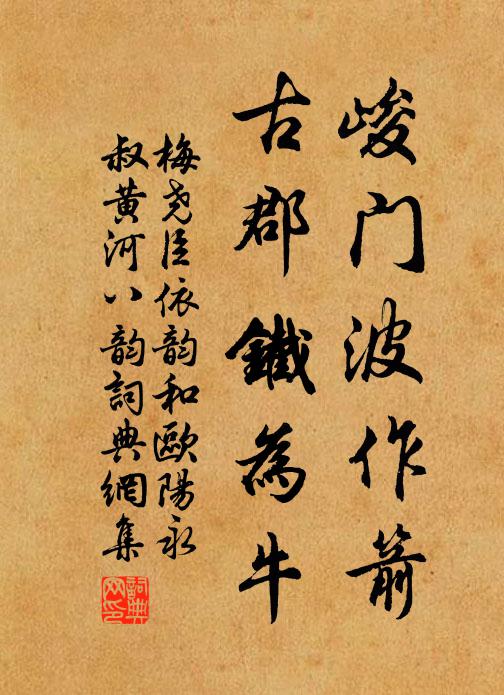 峻门波作箭
古郡鐵為牛
梅尧臣依韵和歐陽永
叔黄河八韵詞典網集
詞典
网印